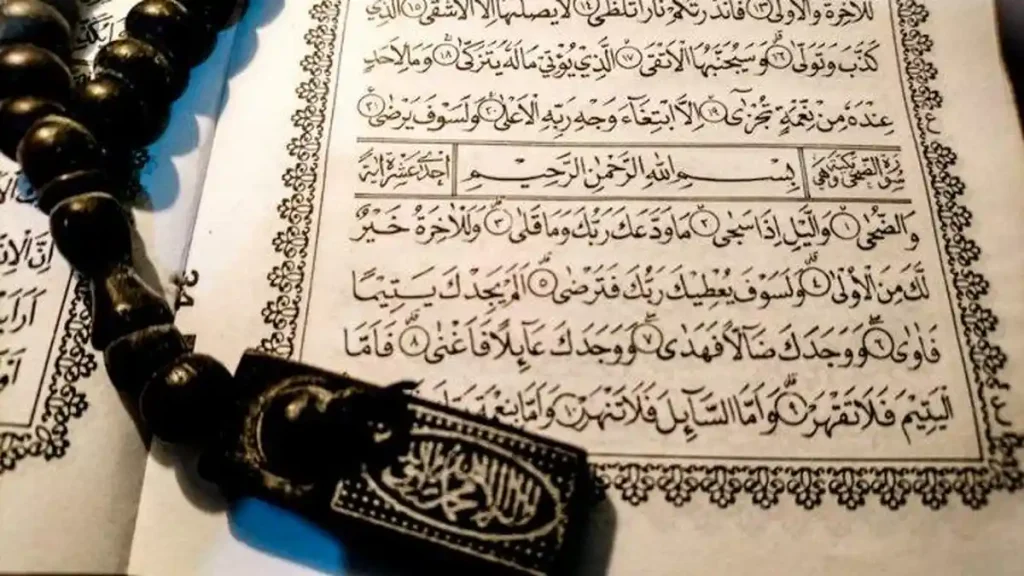 لَلْاٰخِرَةَ وَالْاُوْلٰى ١٣ فَاَنْذَرْتُكُمْ نَارًا تَلَظّٰى ١٤ لَا يَصْلٰىهَآ اِلَّا الْاَشْقَى ١٥ الَّذِيْ
كَذَّبَ وَتَوَلّٰى ١٦ وَسَيُجَنَّبُهَا الْاَتْقَى ١٧ الَّذِيْ يُؤْتِيْ مَالَهٗ يَتَزَكّٰى ١٨ وَمَا لِاَحَدٍ
عِنْدَهٗ مِنْ نِّعْمَةٍ تُجْزٰٓى ١٩ اِلَّا ابْتِغَآءَ وَجْهِ رَبِّهِ الْاَعْلٰى ٢٠ وَلَسَوْفَ يَرْضٰى ٢١
سورة الضحى مكية وهي بِسْمِ اللّٰهِ الرَّحْمٰنِ الرَّحِيْمِ احدى عشرة اية
وَالضُّحٰى ١ وَالَّيْلِ اِذَا سَجٰى ٢ مَا وَدَّعَكَ رَبُّكَ وَمَا قَلٰى ٣ وَلَلْاٰخِرَةُ خَيْرٌ
لَّكَ مِنَ الْاُوْلٰى ٤ وَلَسَوْفَ يُعْطِيْكَ رَبُّكَ فَتَرْضٰى ٥ اَلَمْ يَجِدْكَ يَتِيْمًا
فَاٰوٰى ٦ وَوَجَدَكَ ضَآلًّا فَهَدٰى ٧ وَوَجَدَكَ عَآئِلًا فَاَغْنٰى ٨ فَاَمَّا
الْيَتِيْمَ فَلَا تَقْهَرْ ٩ وَاَمَّا السَّآئِلَ فَلَا تَنْهَرْ ١٠ وَاَمَّا بِنِعْمَةِ